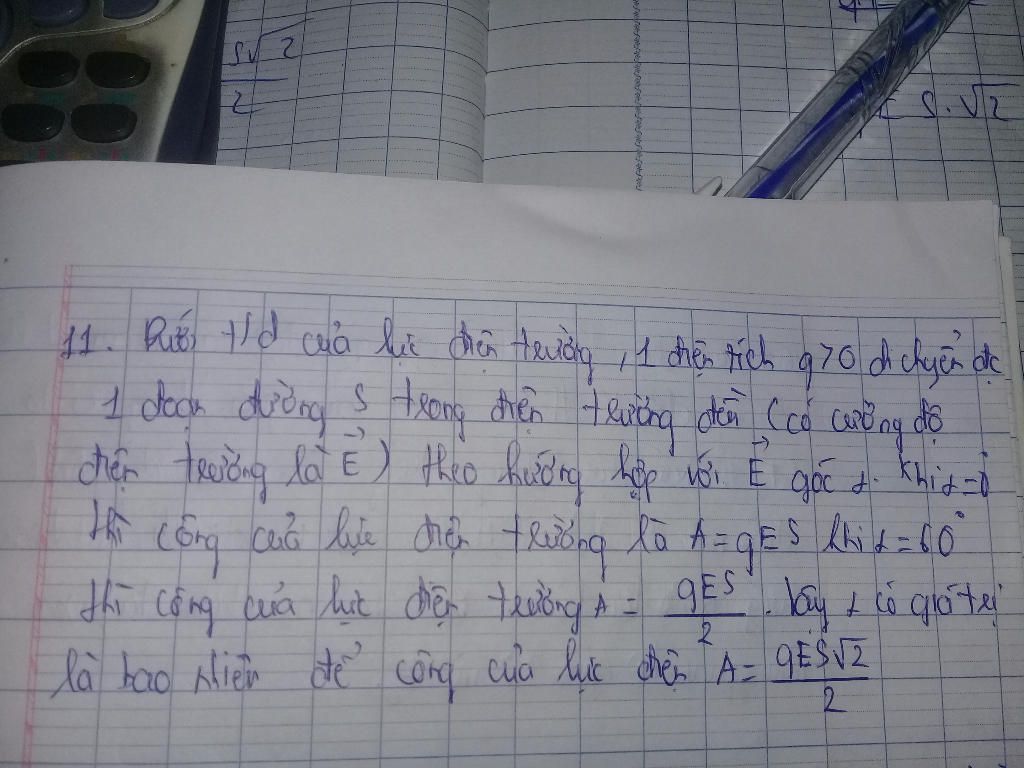 S√2
2
E S.√2
11. Dưới t/d của lực điện trường, 1 điện tích q>0 di chuyển đc
1 đoạn đường S trong điện trường đều (có cường độ
điện trường là E⃗) theo hướng hợp với E⃗ góc α. Khi α=0
thì công của lực điện trường là A=qES khi α=60°
thì công của lực điện trường A = qES/2. Vậy α có giá trị
là bao nhiêu để công của lực điện A= qES√2/2